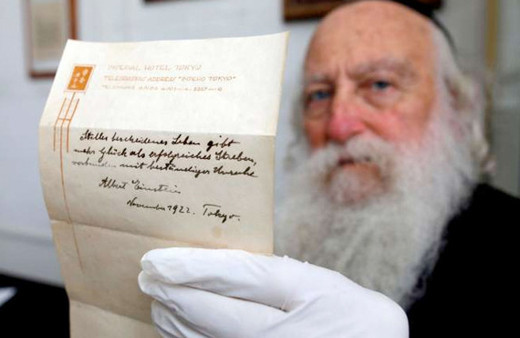 IMPERIAL HOTEL TOKYO
TELEGRAPHIC ADDRESS TOKYO"
Stilles bescheidenes Leben gibt
mehr Glück als erfolgreiches Streben,
verbunden mit beständiger Unruhe
Albert Einstein
November 1922. Tokyo.